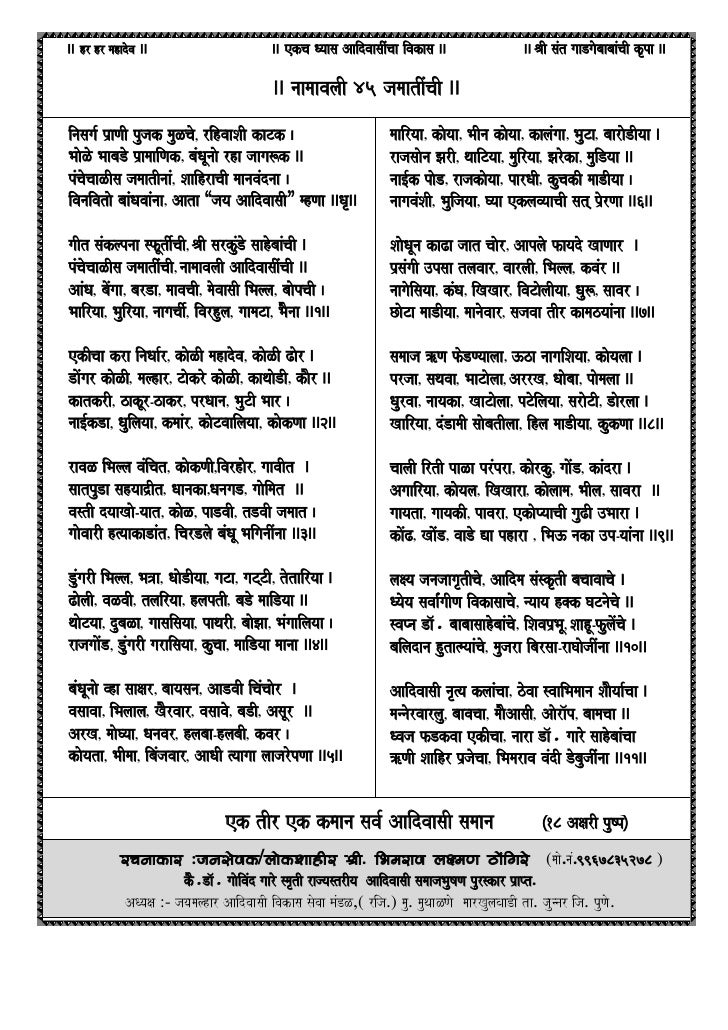 ॥ हर हर महादेव ॥ ॥ एकच ध्यास आदिवासींचा विकास ॥ ॥ श्री संत गाडगेबाबांची कृपा ॥
॥ नामावली ४५ जमातींची ॥
निसर्ग प्राणी पुजक मुळचे, रहिवाशी काटक ।
भोळे भाबडे प्रामाणिक, बंधूनो रहा जागरूक ॥
पंचेचाळीस जमातीनां, शाहिराची मानवंदना ।
विनवितो बांधवांना, आता “जय आदिवासी” म्हणा ॥धृ॥
गीत संकल्पना स्फूर्तीची, श्री सरकुंडे साहेबांची ।
पंचेचाळीस जमातींची, नामावली आदिवासींची ॥
आंध, बेंगा, बरडा, मावची, मेवासी भिल्ल, बोपची ।
भारिया, भुरिया, नागर्ची, विरहुल, गामटा, भैना ॥१॥
एकीचा करा निर्धार, कोळी महादेव, कोळी ढोर ।
डोंगर कोळी, मल्हार, टोकरे कोळी, काथोडी, कौर ॥
कातकरी, ठाकूर-ठाकर, परधान, भुटी भार ।
नाईकडा, धुलिया, कमांर, कोटवालिया, कोकणा ॥२॥
रावळ भिल्ल वंचित, कोकणी,विरहोर, गावीत ।
सातपुडा सहयाद्रीत, धानका,धनगड, गोमित ॥
वस्ती दयाखो-यात, कोळ, पाडवी, तडवी जमात ।
गोवारी हत्याकाडांत, चिरडले बंधू भगिनींना ॥३॥
डुंगरी भिल्ल, भत्रा, धोडीया, गटा, गट्टी, तेतारिया ।
ढोली, वळवी, तलरिया, हलपती, बडे माडिया ॥
थोटया, दुबळा, गाससिया, पाथरी, बोझा, भंगालिया ।
राजगोंड, डुंगरी गरासिया, कुचा, माडिया माना ॥४॥
बंधूनो व्हा साक्षर, बायसन, आडवी चिंचोर ।
वसावा, भिलाल, खैरवार, वसावे, बडी, असूर ॥
अरख, मोघ्या, धनवर, हलबा-हलबी, कवर ।
कोयता, भीमा, बिंजवार, आधी त्यागा लाजरेपणा ॥५॥
मारिया, कोया, भीन कोया, कालंगा, भुटा, बारोडीया ।
राजसोन झरी, थाटिया, मुरिया, झरेका, मुडिया ॥
नाईक पोड, राजकोया, पारधी, कुचकी माडीया ।
नागवंशी, भुजिया, घ्या एकलव्याची सत् प्रेरणा ॥६॥
शोधून काढा जात चोर, आपले फायदे खाणार ।
प्रसंगी उपसा तलवार, वारली, भिल्ल, कवंर ॥
नागेसिया, कंध, खिखार, विटोलीया, धुरू, सावर ।
छोटा माडीया, मानेवार, सजवा तीर कामठयांना ॥७॥
समाज ऋण फेडण्याला, ऊठा नागशिया, कोयला ।
परजा, सथवा, भाटोला,अरख, धोबा, पोमला ॥
धुरवा, नायका, खाटोला, पटेलिया, सरोटी, डोरला ।
खारिया, दंडामी सोबतीला, हिल माडीया, कुकणा ॥८॥
चाली रिती पाळा परंपरा, कोरकु, गोंड, कांदरा ।
अगारिया, कोयल, खिखारा, कोलाम, भील, सावरा ॥
गायता, गायकी, पावरा, एकोप्याची गुढी उभारा ।
कोंढ, खोंड, वाडे द्या पहारा , भिऊ नका उप-यांना ॥९॥
लक्ष्य जनजागृतीचे, आदिम संस्कृती बचावाचे ।
ध्येय सर्वागीण विकासाचे, न्याय हक्क घटनेचे ॥
स्वप्न डॉ. बाबासाहेबांचे, शिवप्रभू, शाहू-फुलेंचे ।
बलिदान हुतात्म्यांचे, मुजरा बिरसा-राघोजींना ॥१०॥
आदिवासी नृत्य कलांचा, ठेवा स्वाभिमान शौर्याचा ।
मन्नेरवारलु, बावचा, मौआसी, ओरॉप, बामचा ॥
ध्वज फडकवा एकीचा, नारा डॉ. गारे साहेबांचा
ऋणी शाहिर प्रजेचा, भिमराव वंदी डेबुजींना ॥११॥
एक तीर एक कमान सर्व आदिवासी समान (१८ अक्षरी पुष्प)
रचनाकार :जनसेवक/लोकशाहीर श्री. भिमराव लक्ष्मण ठोंगिरे (मो.नं.९९६७८३५२७८ )
कै.डॉ. गोविंद गारे स्मृती राज्यस्तरीय आदिवासी समाजभुषण पुरस्कार प्राप्त.
अध्यक्ष :- जयमल्हार आदिवासी विकास सेवा मंडळ,( रजि.) मु. मुथाळणे मारखुलवाडी ता. जुन्नर जि. पुणे.